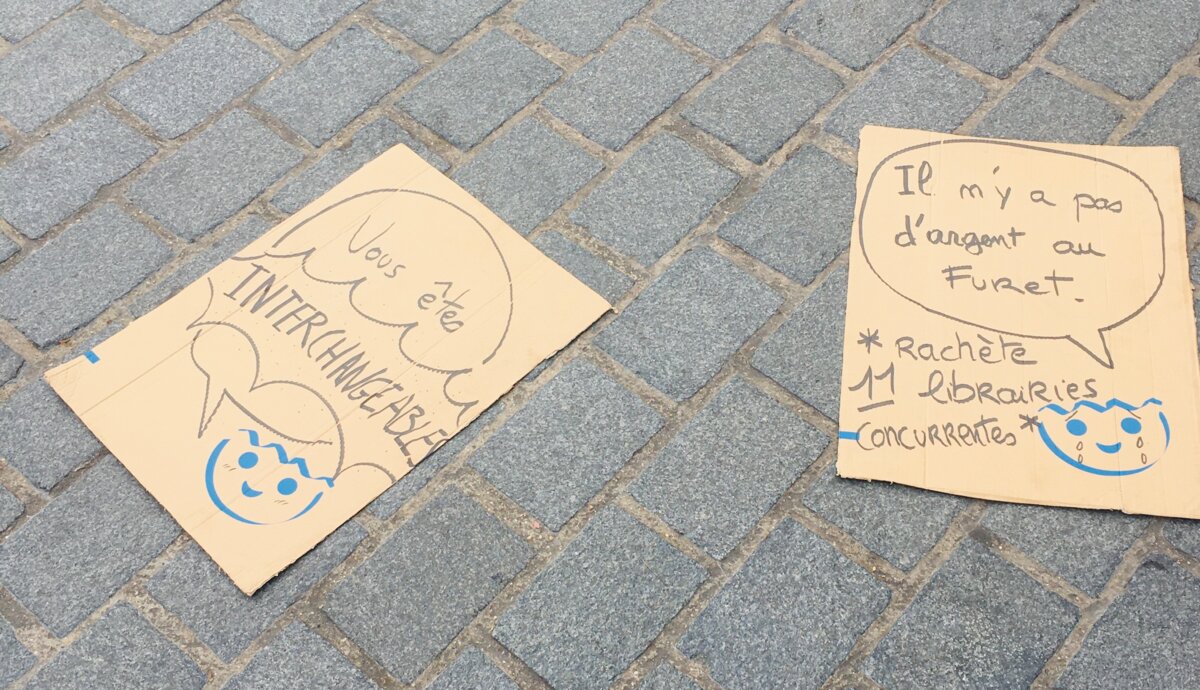 Vous
êtes
INTERCHANGEABLES
Il n'y a pas
d'argent au
Furet.
* Rachète
11 librairies
concurrentes *